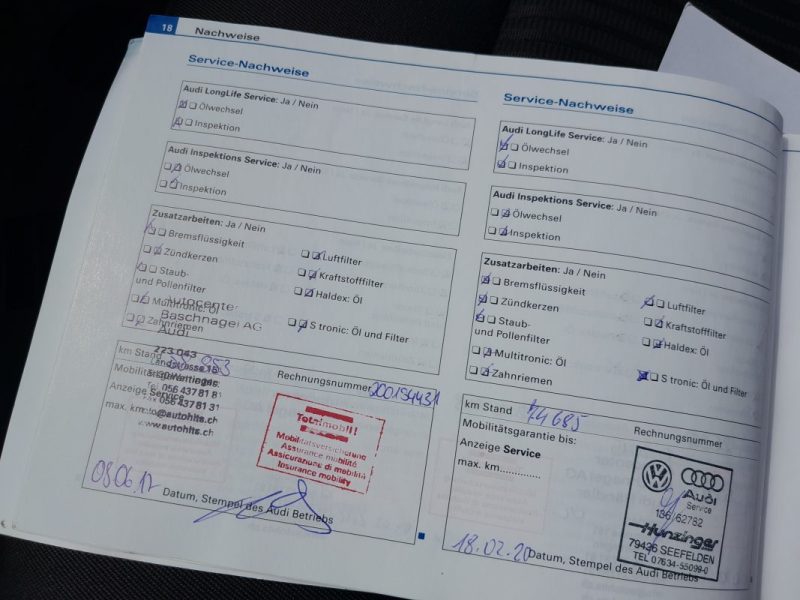 18 Nachweise
Service-Nachweise
Audi LongLife Service: Ja / Nein
Ölwechsel
Inspektion
Audi Inspektions Service: Ja / Nein
Ölwechsel
Inspektion
Zusatzarbeiten: Ja / Nein
Bremsflüssigkeit
Zündkerzen
Staub-
und Pollenfilter
Multitronic: Öl
Zahnriemen
Luftfilter
Kraftstofffilter
Haldex: Öl
S tronic: Öl und Filter
Autocenter
Baschnagel AG
Audi
km Stand
Rechnungsnummer 200154431
Mobilitätsgarantie bis:
Anzeige Service
max. km
Tel. 056 437 81 81
Fax 056 437 81 31
info@autohits.ch
www.autohits.ch
Totalmobil!
Mobilitätsversicherung
Assurance mobilité
Assicurazione di mobilità
Insurance mobility
08.06.17
Datum, Stempel des Audi Betriebs
Service-Nachweise
Audi LongLife Service: Ja / Nein
Ölwechsel
Inspektion
Audi Inspektions Service: Ja / Nein
Ölwechsel
Inspektion
Zusatzarbeiten: Ja / Nein
Bremsflüssigkeit
Zündkerzen
Staub-
und Pollenfilter
Multitronic: Öl
Zahnriemen
Luftfilter
Kraftstofffilter
Haldex: Öl
S tronic: Öl und Filter
km Stand 74685
Rechnungsnummer
Mobilitätsgarantie bis:
Anzeige Service
max. km.............
Audi
Service
136/62782
Hunzinger
79426 SEEFELDEN
TEL 07634-55099-0
18.02.20 Datum, Stempel des Audi Betriebs